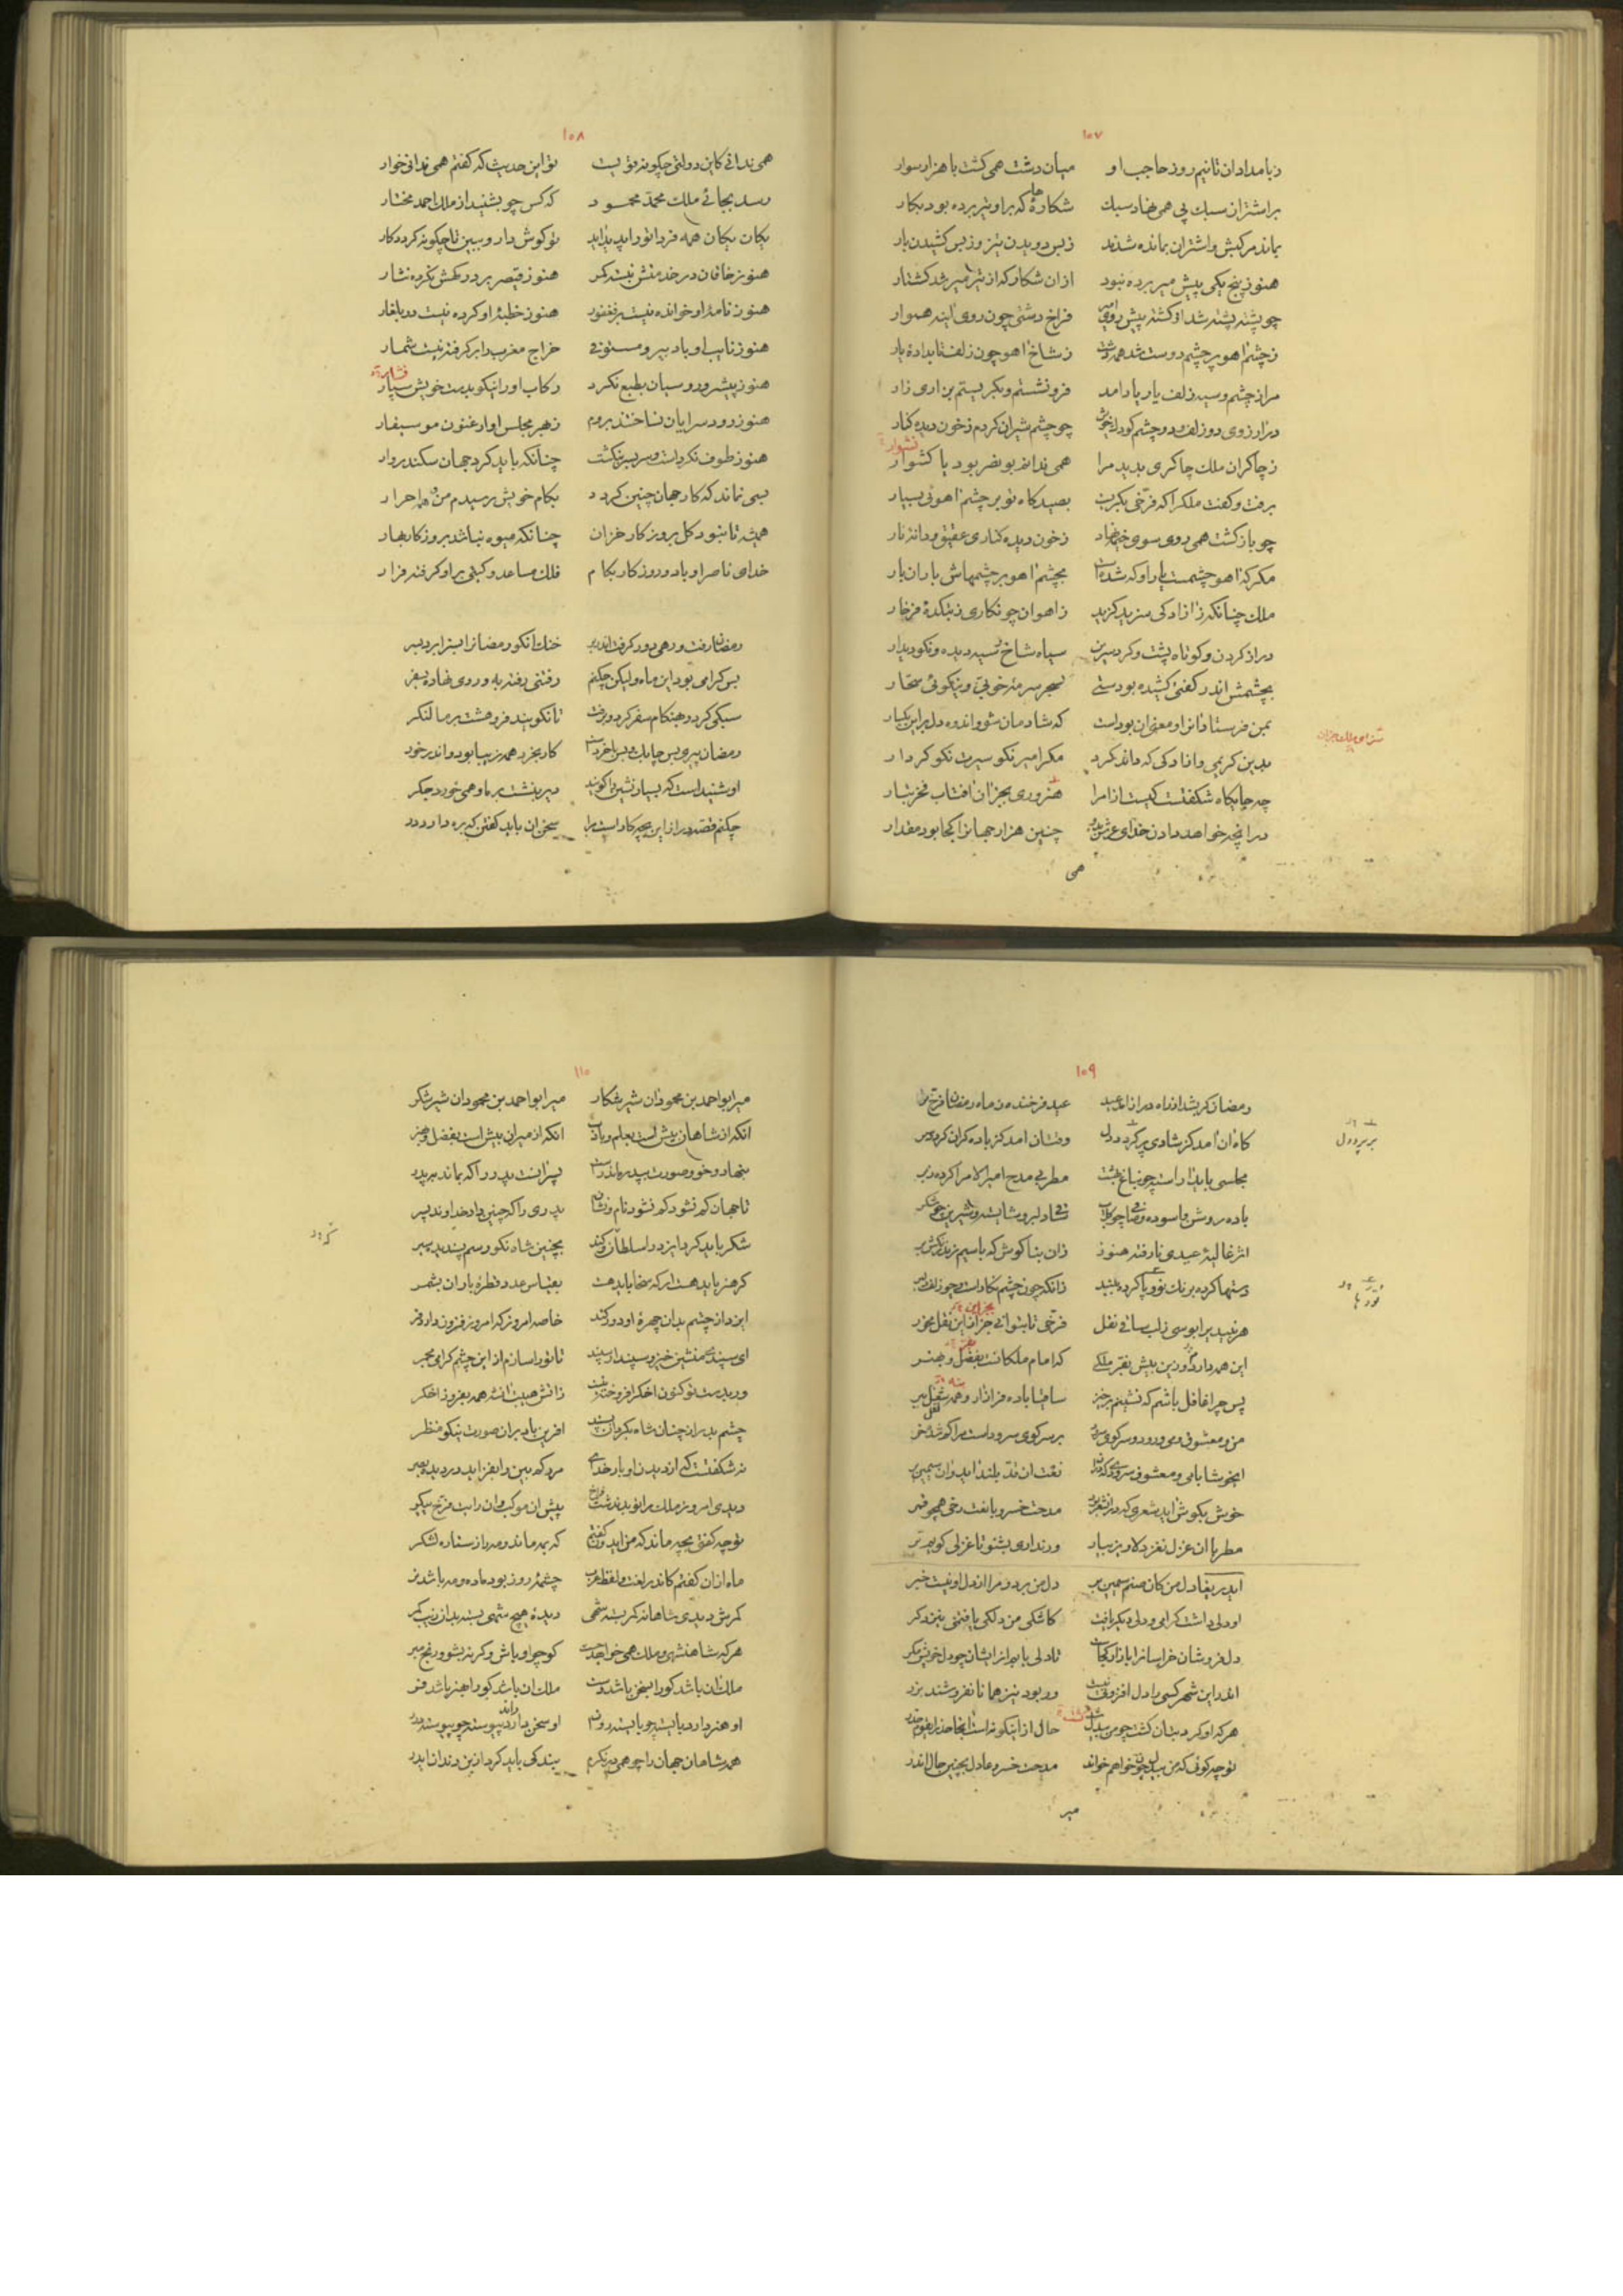 ۱۰۷
ز بامدادان تا نیم روز حاجب او میان دشت همی گشت با هزار سوار
بر اشتران سبك پی همی نهاد سبك شکارهٔ که بر او تیر برده بود بکار
بماند مرکبش و اشتران بمانده شدند ز بس دویدن تیز و ز بس کشیدن بار
هنوز پنج یکی پیش میر برده نبود ازان شکار که از تیر میر شد کشتار
چو پشته پشته شد از کشته پیش روی امیر فراخ دشتی چون روی اینه هموار
ز چشم اهو بر چشم دوست شد همه دشت ز شاخ اهو چون زلف تابدادهٔ یار
مرا ز چشم و سیه زلف یار یاد امد فرو نشستم و بکریستم بزاری زار
در ارزوی دو زلف و دو چشم کودك خویش چو چشم شیران کردم ز خون دیده کنار
ز چاکران ملك چاکری بدید مرا همی نداند بو نصر بود یا کشوار
برفت و کفت ملك را که فرخی بکریست بصید کاه تو بر چشم اهوئی بسیار
چو باز کشت همی روی سوی خیمه نهاد ز خون دیده کناری عقیق و دانه نار
مکر که اهو چشمست یار او که شده است بچشم اهو بر چشمهاش باران بار
ملك چنانکه ز ازادکی سزید کزید ز اهوان چو نکاری ز بتکدهٔ فرخار
دراز کردن و کوتاه پشت و کرد سرین سیاه شاخ سیه دیده و نکو دیدار
بچشمش اندر کفتی کشیده بودستی بسحر سرمهٔ خوبی و نیکوئی سحّار
بمن فرستاد انرا و معنی ان بوداست که شادمان شو و اندوه دل بر این بکسار
بدین کریمی و ازادکی که داند کرد مکر امیر نکو سیرت نکو کردار
چه جایکاه شکفتست کیست از امرا هنروری بجز ان افتاب فخر تبار
در انچه خواهد دادن خدای عرش بدو چنین هزار جهانرا کجا بود مقدار
همی
۱۰۸
همی ندانی کاین دولتی چکونه قویست تو این حدیث که کفتم همی ندانی خوار
رسد بجائی ملك محمد محمود که کس چو بشنید از ملك احمد مختار
یکان یکان همه فردا تو را پدید اید تو کوش دار و ببین تا چکونه کردد کار
هنوز خاقان در خدمتش نبسته کمر هنوز قیصر بر درکهش نکرده نثار
هنوز نامهٔ او خوانده نیست بر فغفور هنوز خطبهٔ او کرده نیست در بلغار
هنوز نایب او با دبیر و مستوفی خراج مغرب را بر کرفته نیست شمار
هنوز پیشرو روسیان بطبع نکرد رکاب او را نیکو بدست خویش بسپار
فشار
هنوز رود سرایان نساختند بروم ز بهر مجلس او ارغنون موسیقار
هنوز طوف نکرداست و سر بسر نکشت چنانکه باید کرد جهان سکندروار
بسی نماند که کار جهان چنین کردد بکام خویش رسیدم من و همه احرار
همیشه تا نبود کل بروزکار خزان چنانکه میوه نباشد بروزکار بهار
خدای ناصر او باد و روزکار بکام فلك مساعد و کیتی بر او کرفته قرار
رمضان رفت و رهی دور کرفت اندر بر خنك انکو رمضان را بسزا برد بسر
بس کرامی بود این ماه ولیکن چکنم رفتنی رفته به و روی نهاده بسفر
سبکی کرد و بهنکام سفر کرد و برفت تا نکویند فرو هشت بر ما لنکر
رمضان پیری بس چابك و بس باخردست کار بخرد همه زیبا بود و اندر خور
او شنیداست که بسیار نشین را کویند دیر بنشست بر ما و همی خورد جکر
چکنم قصه دراز این بچه کاراست مرا سخن ان باید کفتن که بره دارد در
۱۰۹
رمضان کر بشد از راه فراز امد عید عید فرخنده ز ماه رمضان فرخ تر
کاه ان امد کز شادی پر کردد دل وقت ان امد کز باده کران کردد سر
مجلسی باید اراسته چون باغ بهشت مطربی مدح امیر الامرا کرده ز بر
باده روشن و اسوده و صافی چو کلاب ساقی دلبر و شایسته و شیرین چو شکر
اثر غالیهٔ عیدی نا رفته هنوز زان بناکوش که با سیم زند رنکش بر
دستها کرده برنك نو و پا کرده بلند زانکه چون چشم نکاراست و چو زلف دلبر
هر نبید پر ابوسی ز لب ساقی نقل فرخی تا بتوانی جز از این نقل مخور
بجز این
این همه دارد و زین بیش بفر ملکی که امام ملکانست بفضل و هنر
پس چرا غافل باشم که نشینم برخیز ساقیا باده فراز ار و همه شغل ببر
من و معشوق و می و رود و سر کوی سرود بر سر کوی سرود است مرا کوشه خر
ای خوشا با می و معشوق سرودی که در او نعت ان قد بلند اید و ان سیمین بر
خوش بکوش اید شعری که در ان شعر بود مدحت خسرو یا نعت رخی همچو قمر
مطربا ان غزل نغز دلاویز بیار ور نداری بشنو تا غزلی کویم تر
ای دریغا دل من کان صنم سیمین بر دل من برد و مرا از دل او نیست خبر
او دلی داشت کرامی و دلی دیکر یافت کاشکی من دلکی یافتمی نیز دکر
دل فروشان خراسان را بازار کجاست تا دلی یابم از ایشان چو دل خویش مکر
اندر این شهر کسی را دل افزونی نیست ور بود نیز همانا نفروشند بزر
هر که او کرد بتان کشت چو من بیدل شد حال از اینکونه است اینجا حذر ای قوم حذر
تو چه کوئی که من بیدل چون خواهم خواند مدحت خسرو عادل بچنین حال اندر
میر
۱۱۰
میر ابو احمد بن محمود ان شیر شکار میر ابو احمد بن محمود ان شیر شکر
انکه از شاهان بیش است بعلم و بادب انکه از میران بیش است بفضل و بهنر
بنهاد و خو و صورت بپدر ماند راست پسر انست پدر را که بماند بپدر
تا جهان کم نشود کم نشود نام و نشان پدری را که چنین داد خداوند پسر
شکر باید کرد ایزد را سلطان و کند بچنین شاه نکو رسم پسندیده سیر
کر هنر باید هست ار که سخا باید هست بقیاس عدد قطرهٔ باران بشمر
ایزد از چشم بدان چهرهٔ او دور کند خاصه امروز که امروز فزون دارد فر
ای سپندی منشین خیز و سپند ار سپند تا تو را سازم از این چشم کرامی مجمر
ور بدست تو کنون اخکر افروخته نیست ز اتش هیبت او همه بفروز اخکر
چشم بد را ز چنان شاه بکردان بسپند افرین باد بر ان صورت نیکو منظر
نه شکفتست کی از دیدن او بار خدای مردم کم بین را بفزاید در دیده بصر
دیدی امروز ملك را تو بدین دشت فراخ پیش ان موکب و ان رایت فرخ پیکر
تو چه کفتی بچه ماند که من اید کفتم که بمه ماند و مه را ز ستاره لشکر
ماه ازان کفتم کاندر لغت و لفظ عرب چشمهٔ روز بود ماده و مه باشد نر
کمرش دیدی شاهانه کمر بسته شهی دیدهٔ هیچ شهی بسته بدان زیب کمر
هر که شاهنشهی و ملك همی خواهد جست کو چو او باش و کر نه بشو و رنج مبر
ملك ان باشد کورا بسخن باشد دست ملك ان باشد کورا بهنر باشد فر
او هنر دارد بایسته چو بایسته روان او سخن داند پیوسته چو پیوسته درر
همه شاهان جهان را چو همی بنکرم بندکی باید کرد از بن دندان ایدر